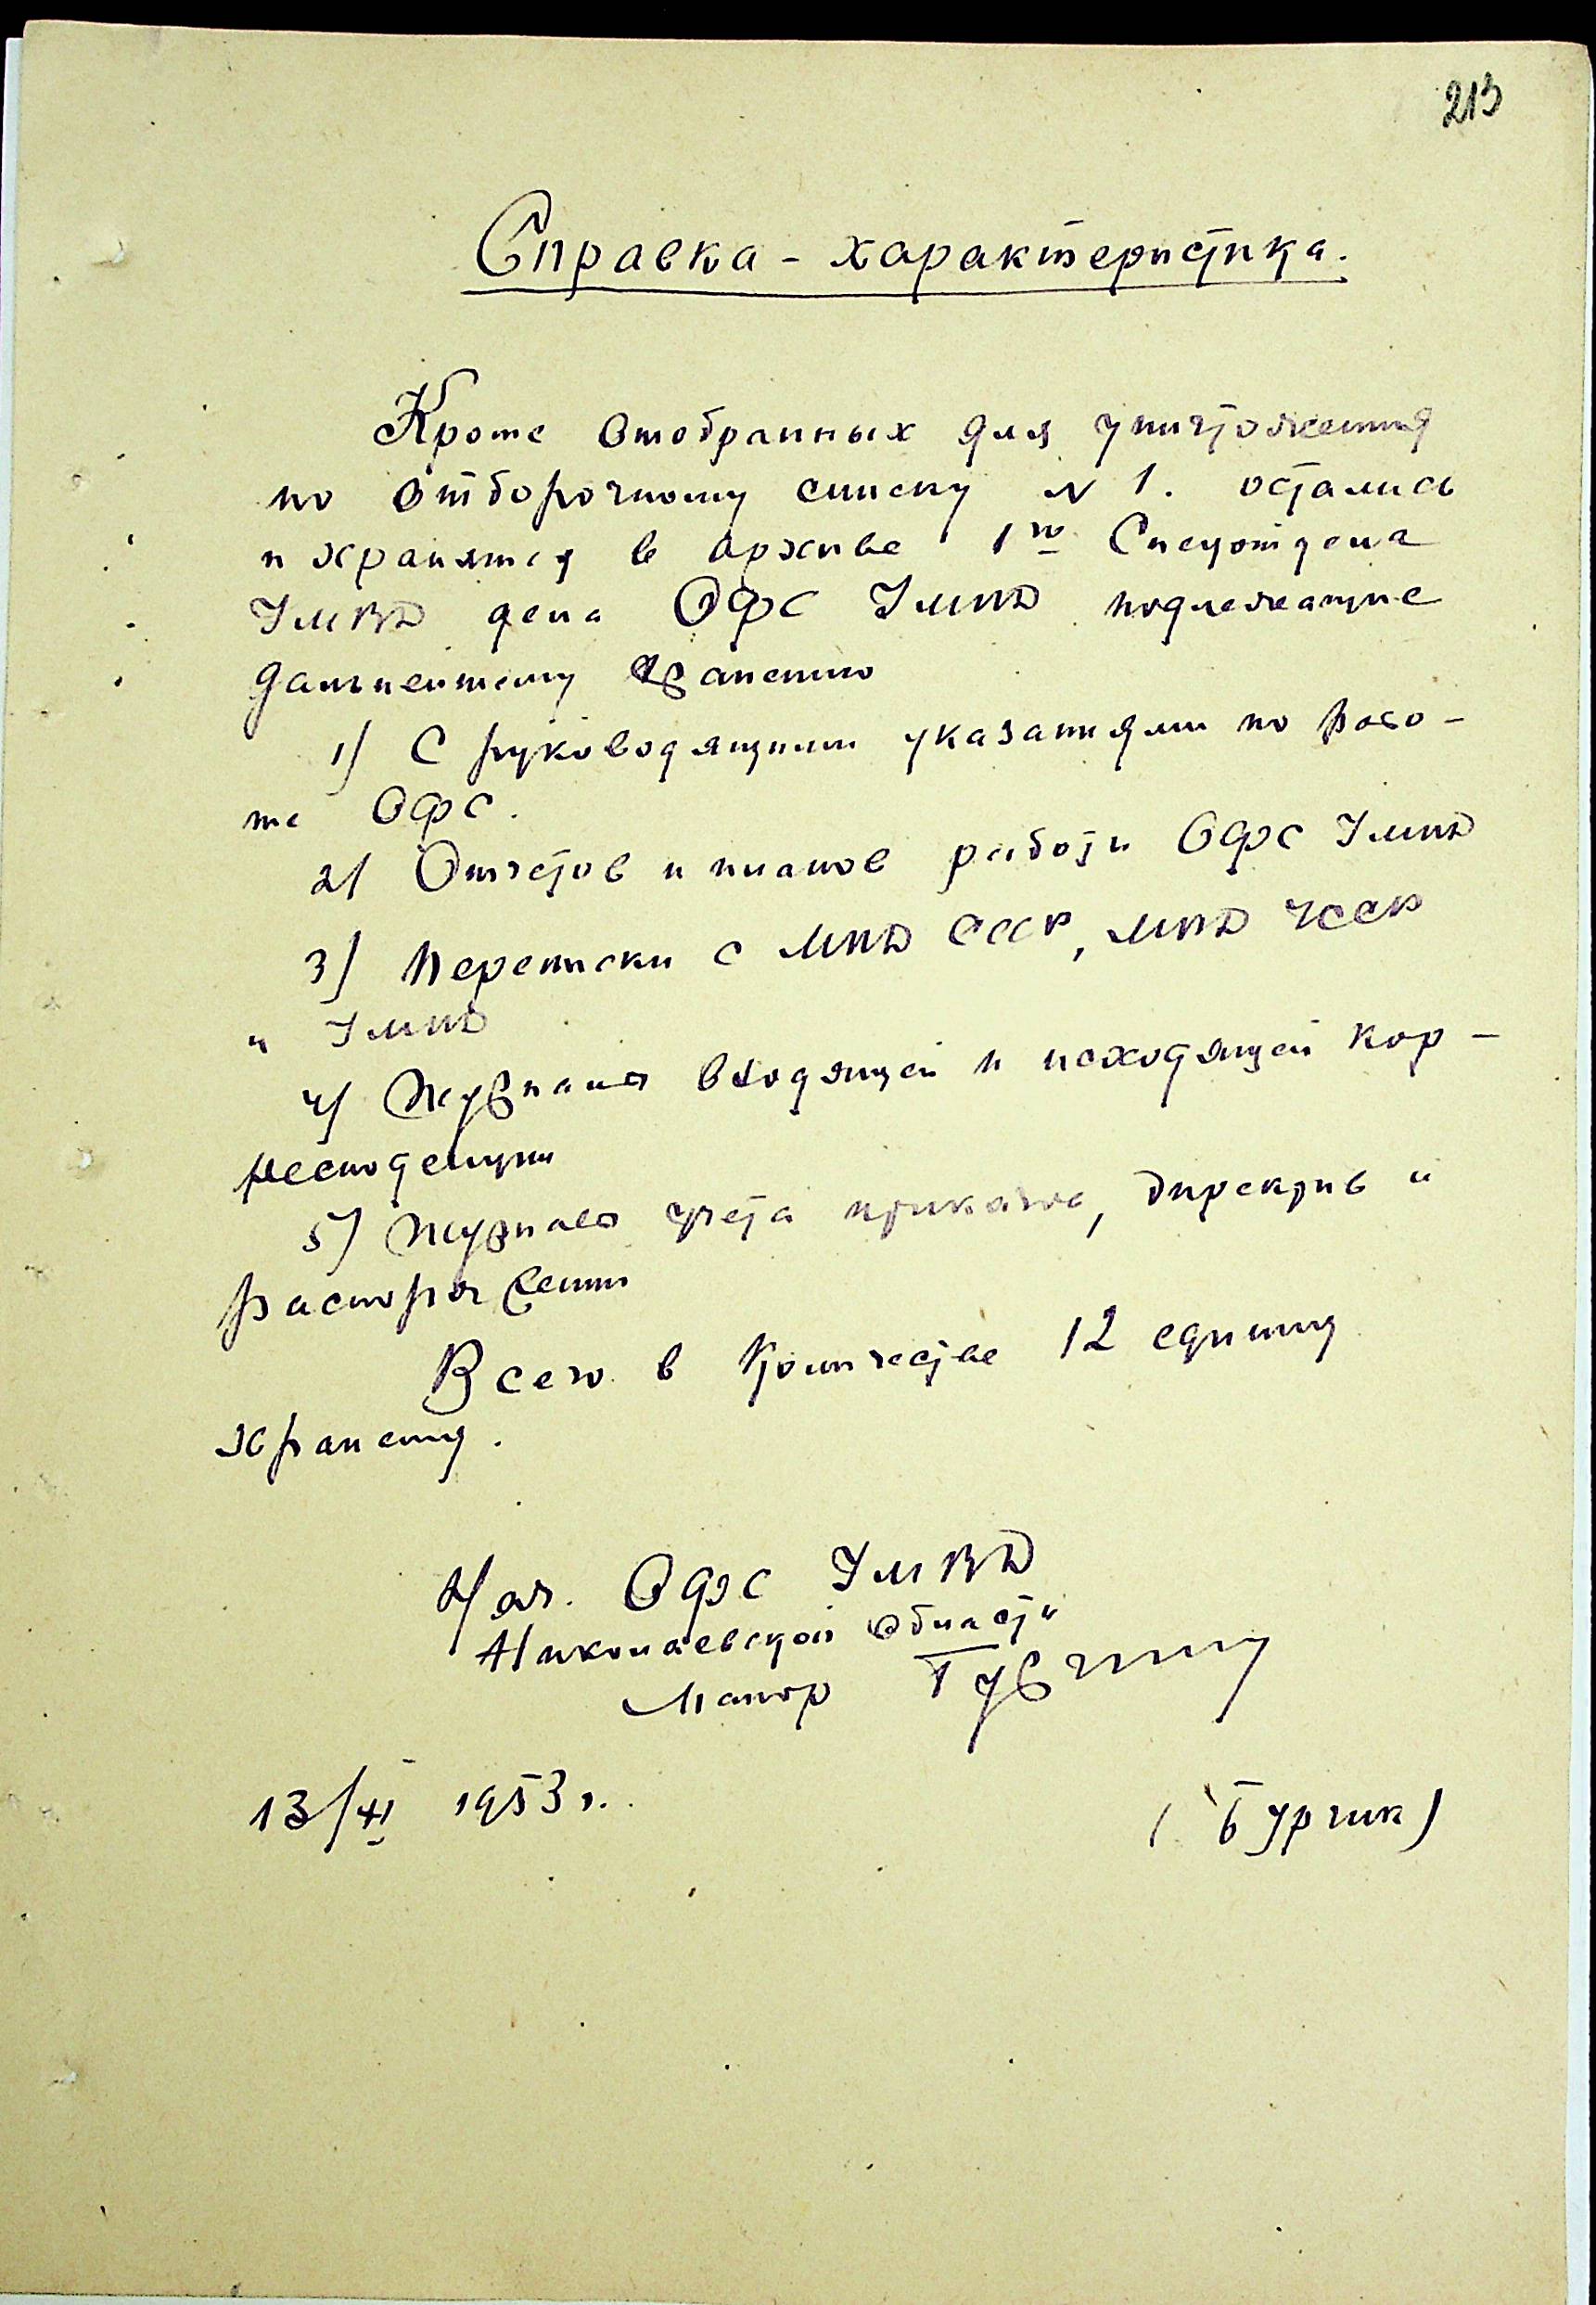 213
Справка - характеристика.
Кроме отобранных для уничтожения
по отборочному списку N 1. остались
и хранятся в архиве 1го Спецотдела
УМВД дела ОФС УМВД подлежащие
дальнейшему хранению
1) С руководящими указаниями по рабо-
те ОФС.
2) Отчетов и планов работы ОФС УМВД
3) Переписки с МВД СССР, МВД УССР
и УМВД
4) Журнала входящей и исходящей кор-
респоденции
5) Журнала учета приказов, директив и
распоряжении
Всего в количестве 12 единиц
хранения.
Нач. ОФС УМВД
Николаевской области
Маиор
13/XI 1953 г.
(Бурчик)